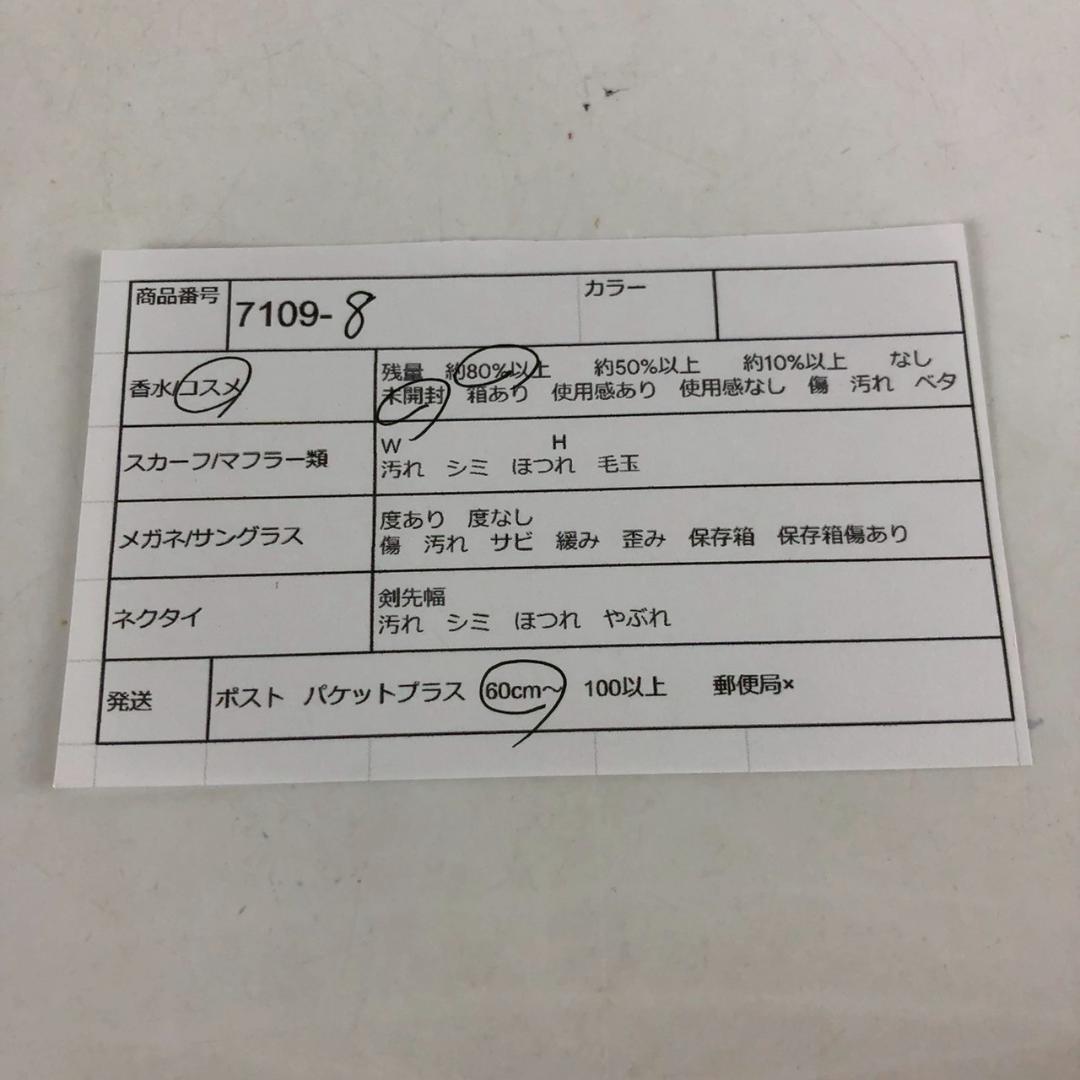 商品番号 7109-8 カラー
香水/コスメ
残量 約80%以上 約50%以上 約10%以上 なし
未開封 箱あり 使用感あり 使用感なし 傷 汚れ ベタ
スカーフ/マフラー類
W H
汚れ シミ ほつれ 毛玉
メガネ/サングラス
度あり 度なし
傷 汚れ サビ 緩み 歪み 保存箱 保存箱傷あり
ネクタイ
剣先幅
汚れ シミ ほつれ やぶれ
発送 ポスト パケットプラス 60cm~ 100以上 郵便局×